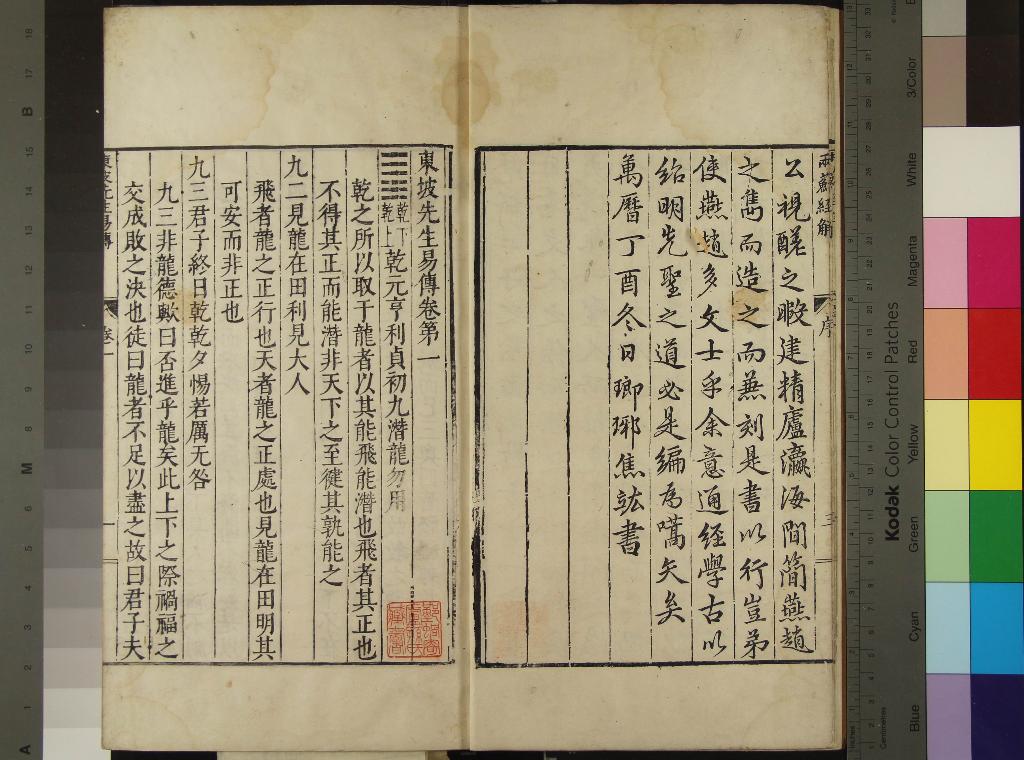 兩蘇經解
序
三
公視醝之暇建精廬瀛海間簡燕趙
之雋而造之而蕪刻是書以行豈弟
使燕趙多文士乎余意通經學古以
紹明先聖之道必是編為嚆矢矣
萬曆丁酉冬日瑯琊焦竑書
東坡先生易傳卷第一
乾下乾上乾元亨利貞初九潛龍勿用
乾之所以取于龍者以其能飛能潛也飛者其正也
不得其正而能潛非天下之至健其孰能之
九二見龍在田利見大人
飛者龍之正行也天者龍之正處也見龍在田明其
可安而非正也
九三君子終日乾乾夕惕若厲无咎
九三非龍德歟曰否進乎龍矣此上下之際禍福之
交成敗之決也徒曰龍者不足以盡之故曰君子夫
東坡先生易傳
卷一
一
Kodak Color Control Patches
Blue
Cyan
Green
Yellow
Red
Magenta
White
3/Color
Inches
Centimetres
1 2 3 4 5 6 7 8 9 10 11 12 13 14 15 16 17 18
A
M
B